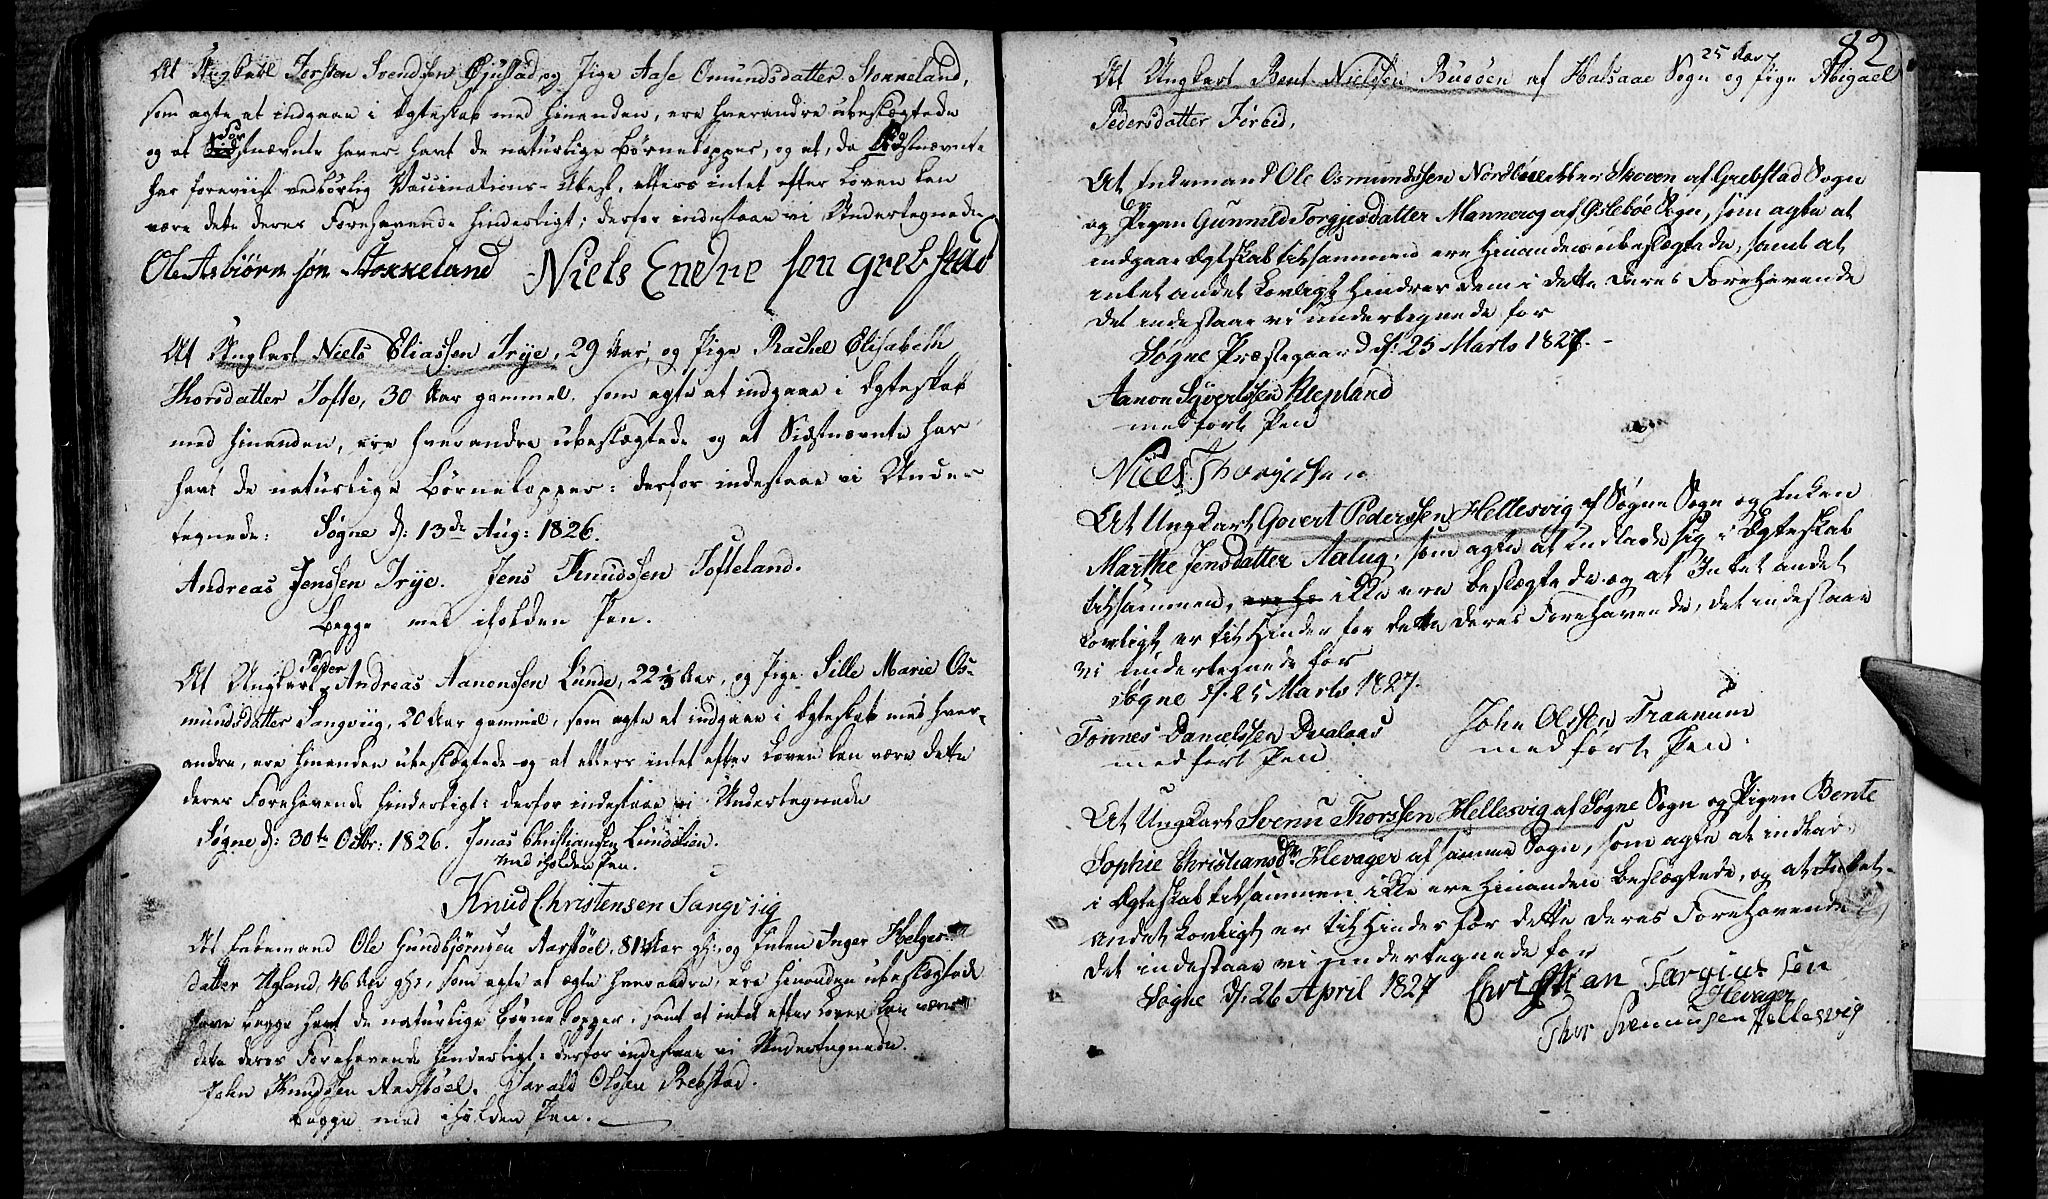 At Ungkarl Tersten Svendsen Gjustad og Pige Aase Omundsdatter Stokkeland,
som agte at indgaae i Ægteskab med hinanden, ere hverandre ubeslægtede
og at Sidstnævnte haver havt de naturlige Børnekopper, og at, da Sidstnævnte
har foreviist vedbørlig Vaccinations-Attest, ellers intet efter Loven kan
være dette deres Forehavende hinderligt; derfor indestaae vi Undertegnede
Ole Asbiørnsøn Stokkeland Niels Endresen Grebstad
At Ungkarl Niels Eliassen Trye, 29 Aar, og Pige Rachel Elisabeth
Thorsdatter Tofte, 30 Aar gammel, som agte at indgaae i Ægteskab
med hinanden, ere hverandre ubeslægtede og at Sidstnævnte har
havt de naturlige Børnekopper: derfor indestaae vi Under-
tegnede: Søgne d: 13de Aug: 1826.
Andreas Jenssen Trye. Jens Knudssen Tofteland.
Begge med iholden Pen.
At Ungkarl Peder Andreas Aanonssen Lunde, 22½ Aar, og Pige Sille Marie Os-
mundsdatter Sangviig, 20 Aar gammel, som agte at indgaae i Ægteskab med hver-
andre, ere hinanden ubeslægtede og at ellers intet efter Loven kan være dette
deres Forehavende hinderligt: derfor indestaae vi Undertegnede
Søgne d: 30te Octbr: 1826. Jonas Christiansen Lundelien.
med iholden Pen.
Knud Christensen Sangviig
At Enkemand Ole Gundbjørnsen Aarstöel, 81 Aar gl: og Enken Inger Helges-
datter Ugland, 46 Aar gl:, som agte at ægte hverandre, ere hinanden ubeslægtede
have begge havt de naturlige Børnekopper, samt at intet efter Loven kan være
dette deres Forehavende hinderligt: derfor indestaae vi Undertegnede.
John Knudsen Aarstöel. Harald Olsen Rebstad.
begge med iholden Pen.
82
25 Aar
At Ungkarl Bent Nielsen Buöen af Halsaae Sogn og Pige Abigael
Pedersdatter
At Enkemand Ole Osmundssen Skoven af Grebstad Sogn
og Pigen Gunnild Torgjusdatter Mannerog af Øslebøe Sogn, som agte at
indgaae Ægteskab tilsammen ere hinanden ubeslægtede, samt at
intet andet Lovligt hindrer dem i dette deres Forehavende
det indestaae vi undertegnede for
Søgne Præstegaard d: 25 Marts 1827.
Aanon Syvertssen Klepland
med ført Pen
Niels
At Ungkarl Govert Pederssen Hellesvig af Søgne Sogn og Enken
Marthe Jensdatter Aalug, som agte at indlade sig i Ægteskab
tilsammen, ikke ere beslægtede og at Intet andet
Lovligt er til Hinder for dette deres Forehavende, det indestaae
vi undertegnede for
Søgne d: 25 Marts 1827.
Tønnes Danielssen Dvalaas John Olssen Traanum
med ført Pen med ført Pen.
At Ungkarl Svenu Thorssen Hellesvig af Søgne Sogn og Pigen Bente
Sophie Christiansdtr Hevager af samme Sogn, som agte at indtræde
i Ægteskab tilsammen ikke ere hinanden beslægtede, og at Intet
andet Lovligt er til Hinder for dette deres Forehavende
det indestaae vi undertegnede for
Søgne d: 26 April 1827 Christian Targiussen
Hevager
Thor Svennusen Hellesvig